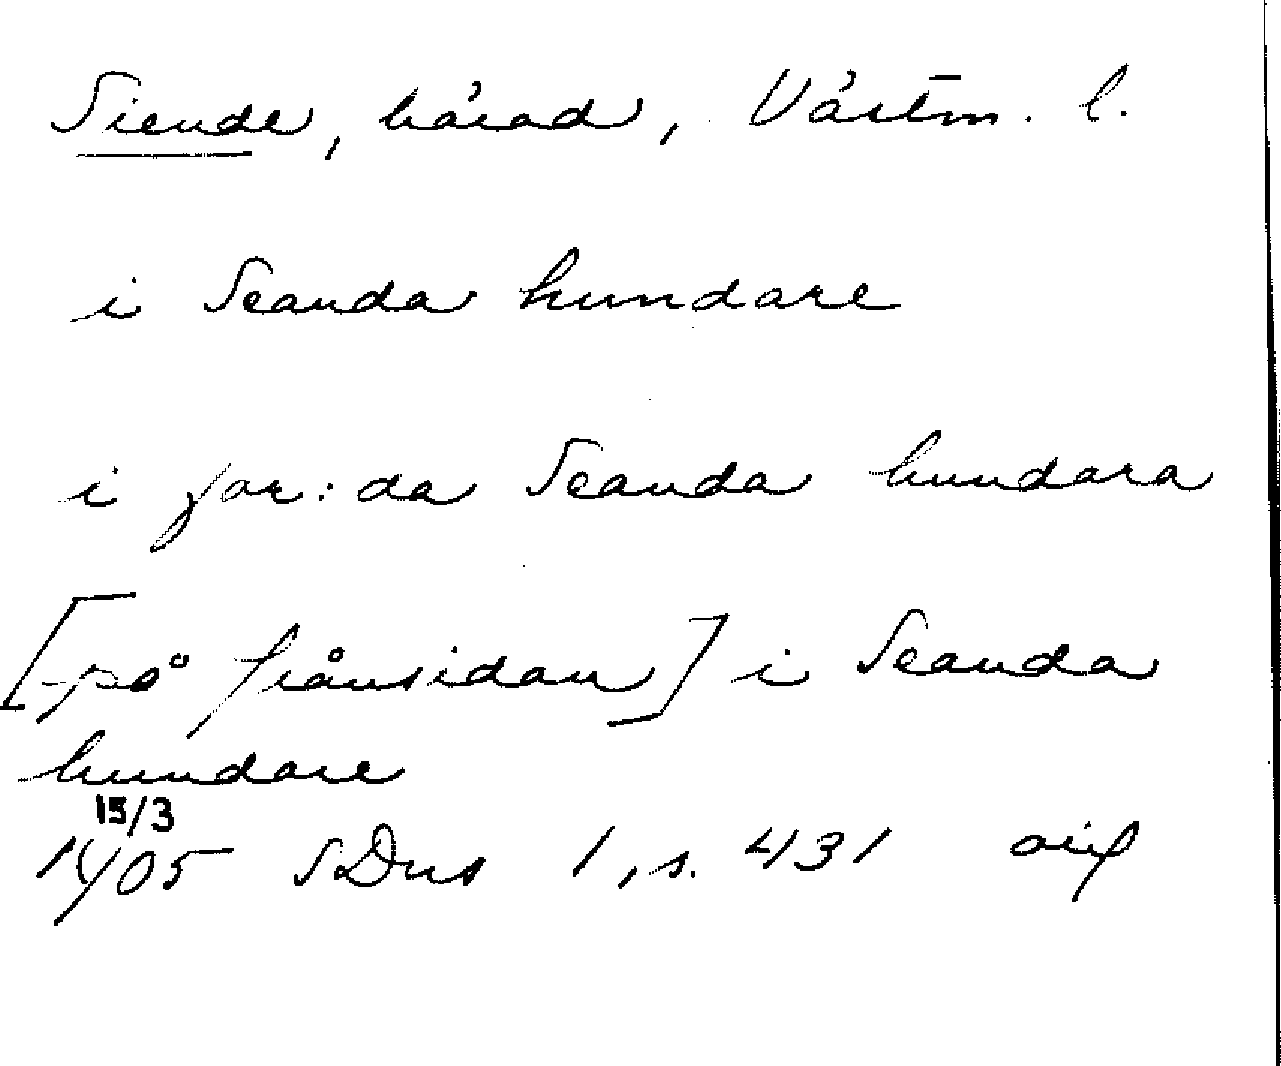 Siende, härad, Västm. l.
i Seanda hundare
i for:da Seanda hundara
[på frånsidan] i Seanda
hundare
15/3
1405 SDns 1, s. 431 orig